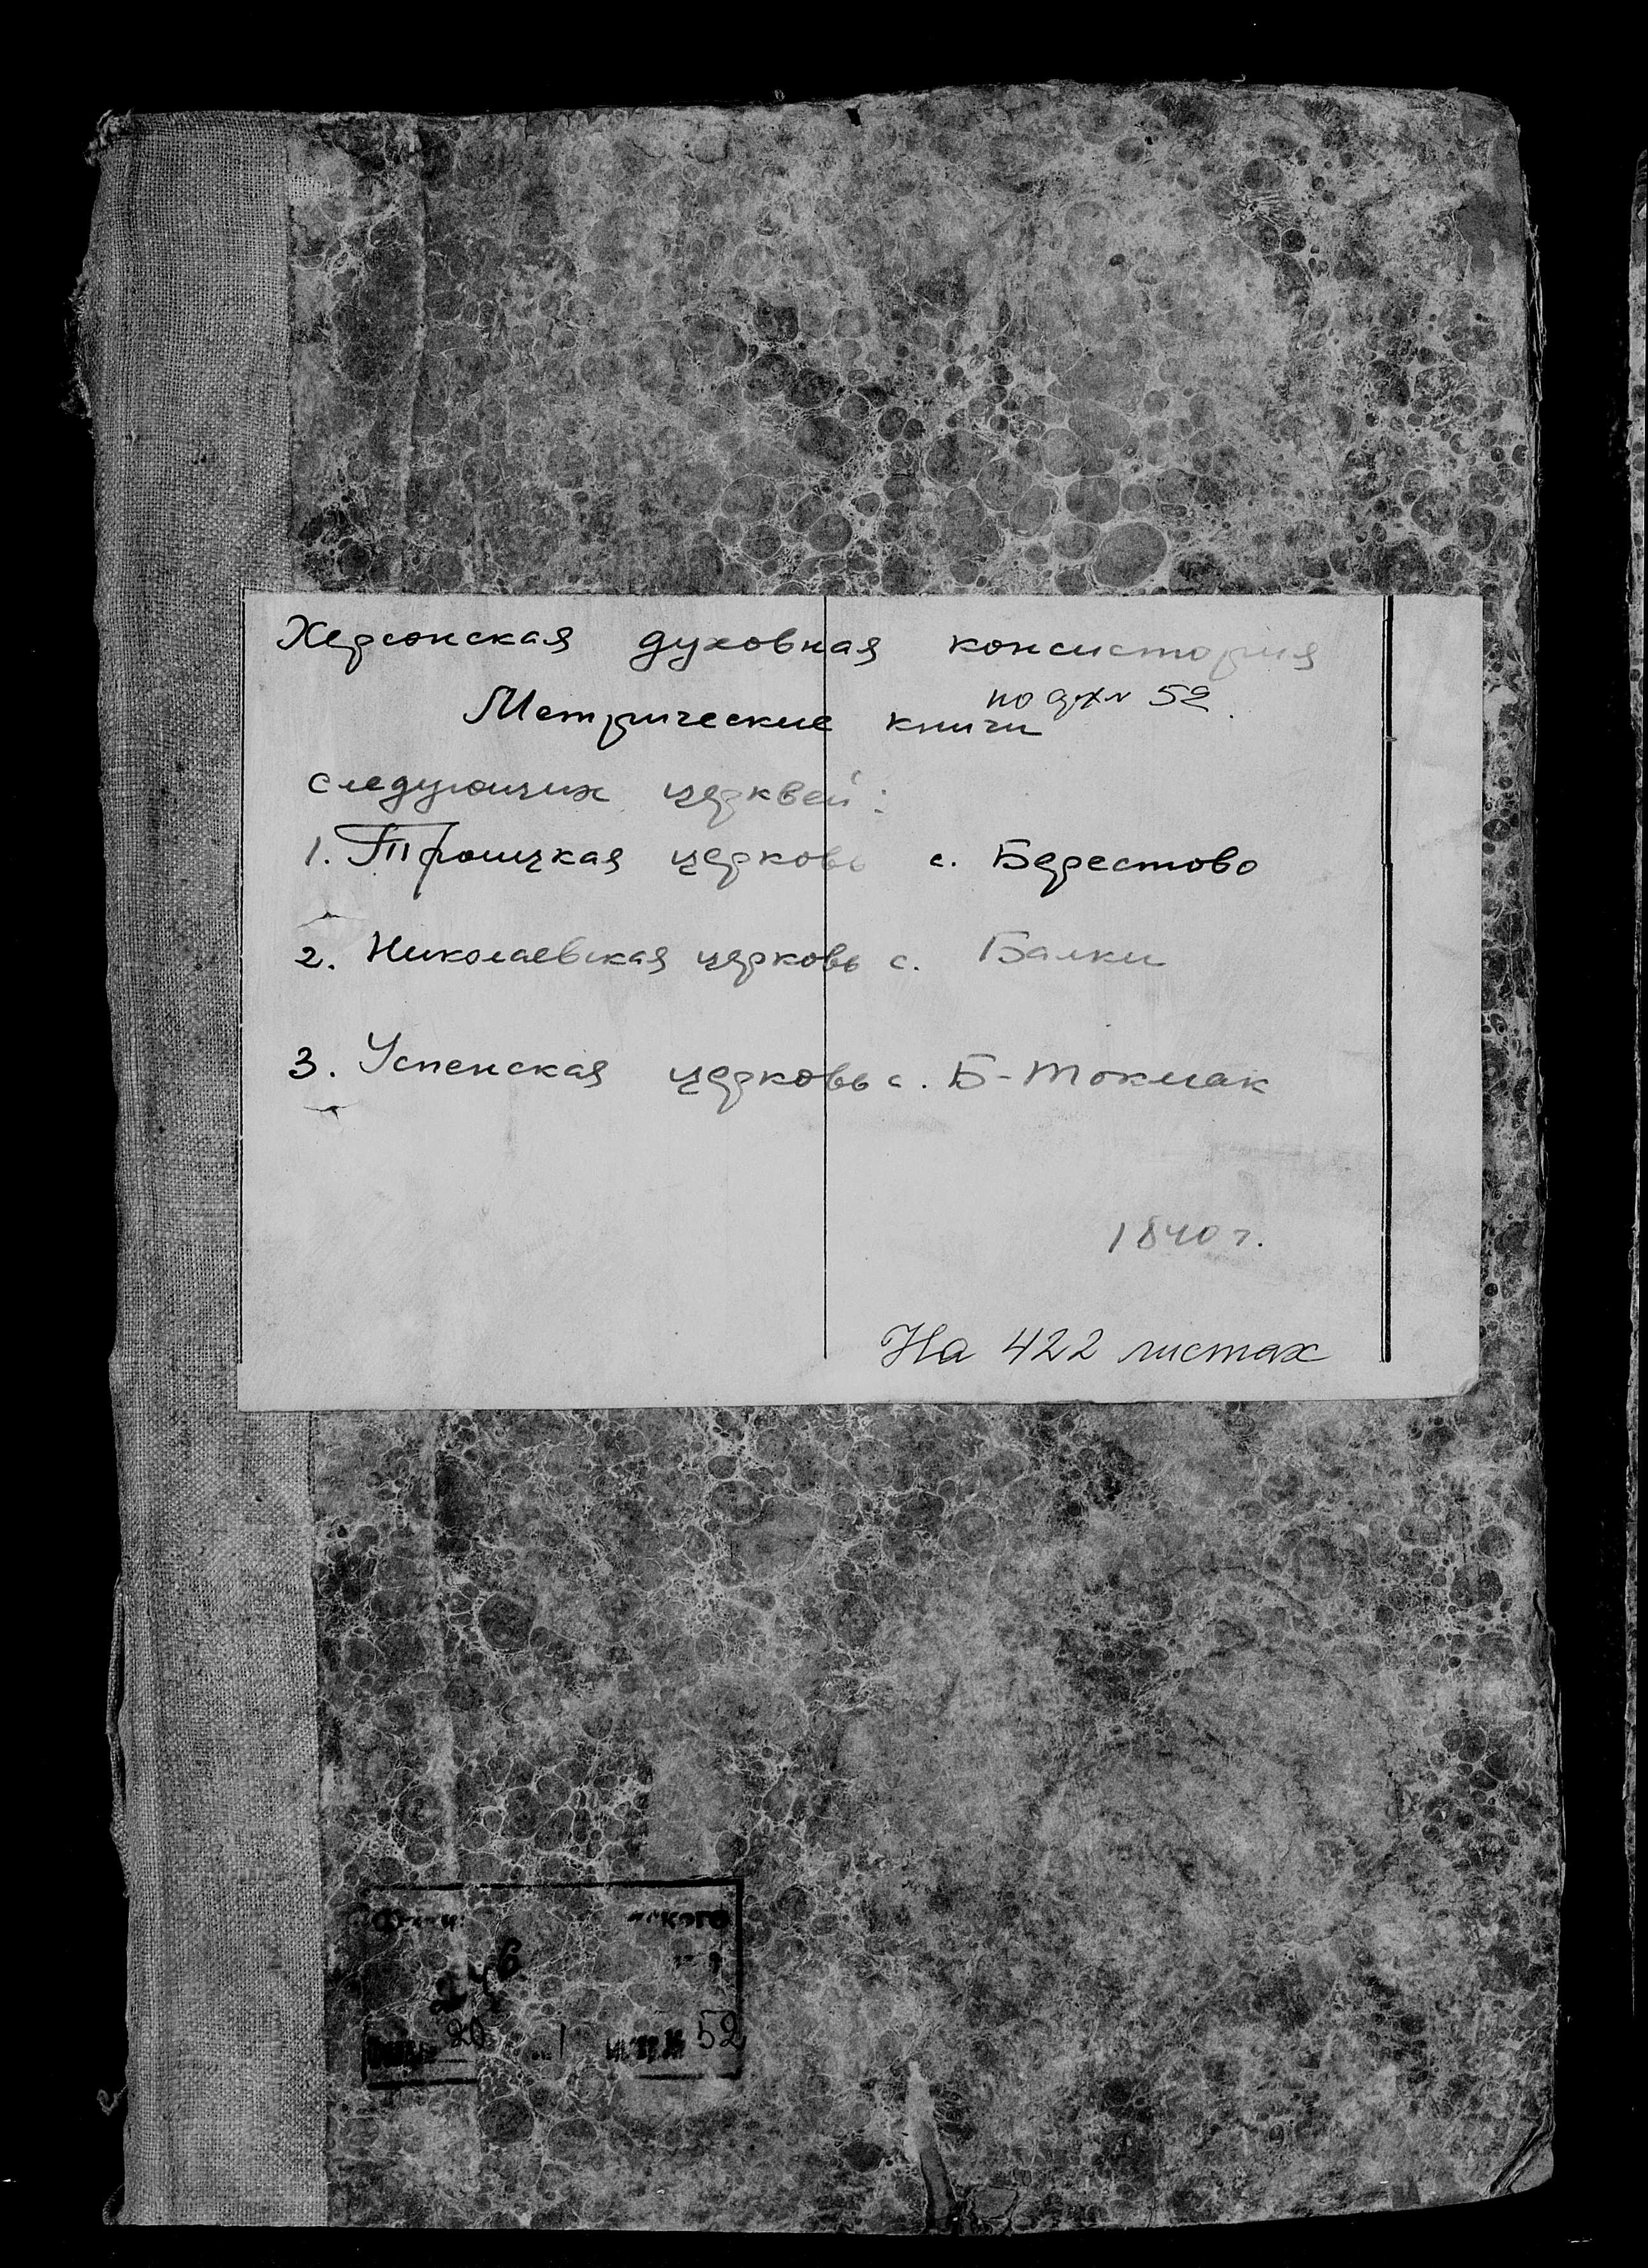 Херсонская духовная консистория
Метрические книги
по арх № 52
следующих церквей:
1. Троицкая церковь с. Берестово
2. Николаевская церковь с. Балки
3. Успенская церковь с. Б-Токмак
1840 г.
На 422 листах
246
20 1 52